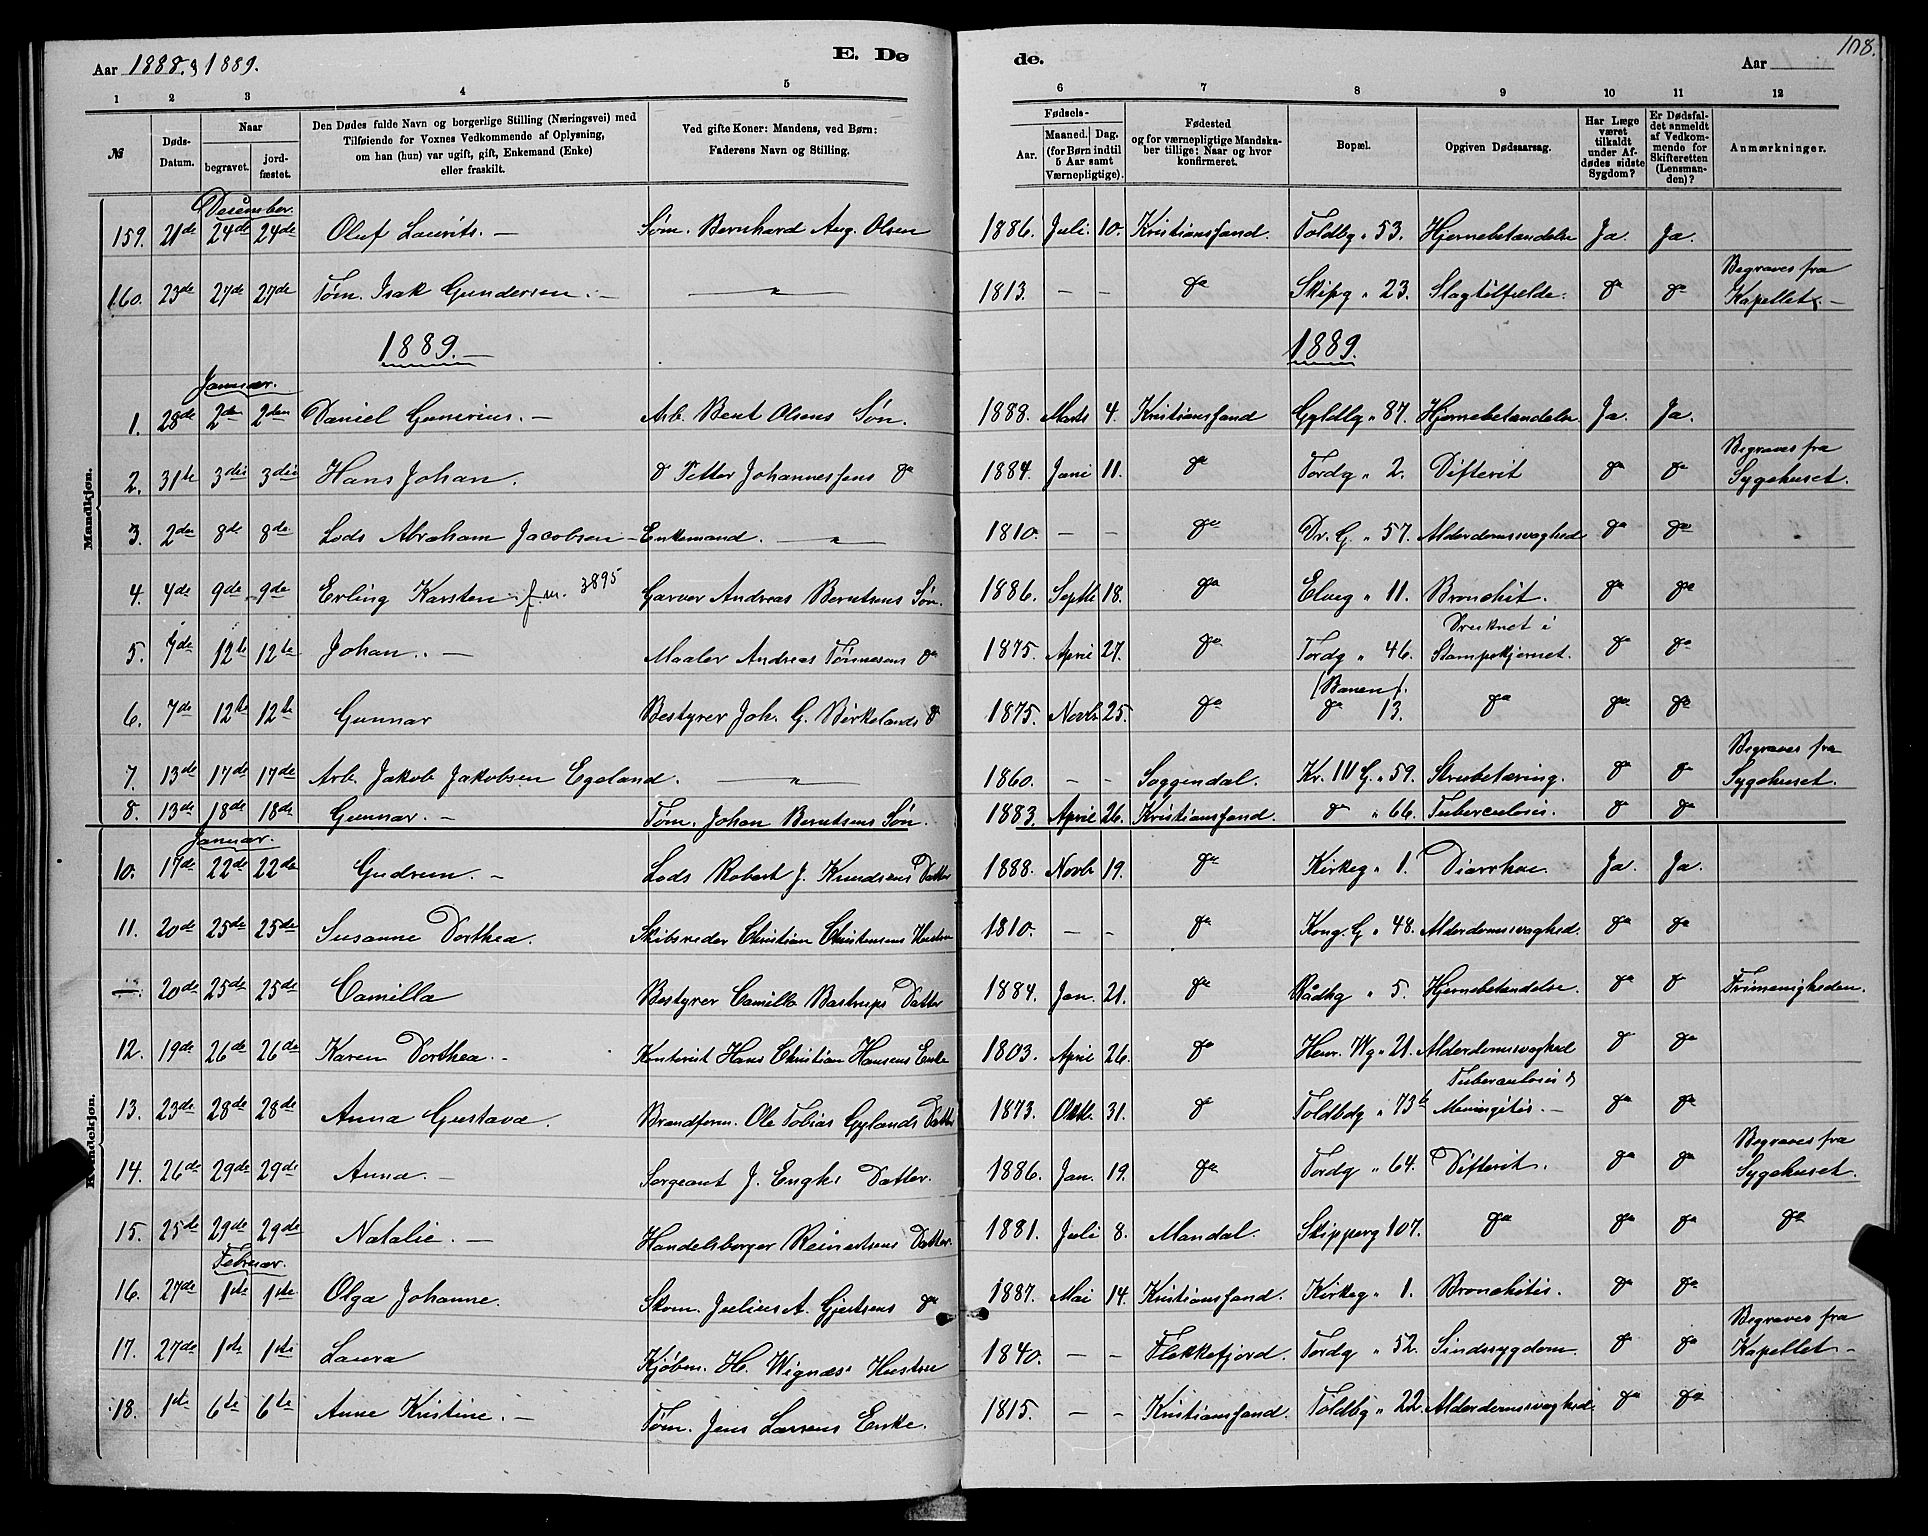 Aar 1888. & 1889.
E. Dø
de.
Aar
108.
1 2 3 4 5 6 7 8 9 10 11 12
№
Døds-
Datum.
Naar
begravet.
jord-
fæstet.
Den Dødes fulde Navn og borgerlige Stilling (Næringsvei) med
Tilføiende for Voxnes Vedkommende af Oplysning,
om han (hun) var ugift, gift, Enkemand (Enke)
eller fraskilt.
Ved gifte Koner: Mandens, ved Børn:
Faderens Navn og Stilling.
Fødsels-
Aar.
Maaned. Dag.
(for Børn indtil
5 Aar samt
Værnepligtige).
Fødested
og for værnepligtige Mandska-
ber tillige: Naar og hvor
konfirmeret.
Bopæl.
Opgiven Dødsaarsag.
Har Læge
været
tilkaldt
under Af-
dødes sidste
Sygdom?
Er Dødsfal-
det anmeldt
af Vedkom-
mende for
Skifteretten
(Lensman-
den)?
Anmærkninger.
Mandkjøn.
December.
159. 21de 24de 24de Oluf Laurits. — Søm. Bernhard Aug. Olsen 1886. Juli 10. Kristianssand. Toldbg " 53. Hjernebetændelse Ja. Ja.
Begraves fra
160. 23de 27de 27de Tøm. Isak Gundersen. — " — 1813. — — do Skipg " 23. Slagtilfælde. do do Kapellet. —
1889. — 1889.
Januar.
1. 28de 2den 2den Daniel Gunerius. — Arb. Bent Olsens Søn. 1888. Marts 4. Kristianssand Gyldlg " 87. Hjernebetændelse Ja. Ja.
Begraves fra
2. 31te 3die 3die Hans Johan. do Petter Johannessens do 1884. Juni 11. do Tordg " 2. Difterit do do Sygehuset.
3. 2den 8de 8de Lods Abraham Jacobsen — Enkemand. — " — 1810. — — do Dr. G. " 57. Alderdomssvaghed do do
4. 4de 9de 9de Erling Karsten f.m. 3895 Garver Andreas Berntsens Søn. 1886. Septb 18. do Elveg " 11. Bronchit. do do
Druknet i
5. 7de 12te 12te Johan. — Maaler Andreas Tønnesens do 1875. April 27. do Tordg " 46. Stampekjernet. do do
(Banen).
6. 7de 12te 12te Gunnar Bestyrer Joh. G. Birkelands do 1875. Novb 25. do do 13. do do do
Begraves fra
7. 13de 17de 17de Arb. Jakob Jakobsen Egeland. — " — 1860. — — Soggendal. Kr. IV G. " 59. Strubetæring. do do Sygehuset.
8. 13de 18de 18de Gunnar. — Tøm. Johan Berntsens Søn. 1883. April 26. Kristianssand. do " 66. Tuberculosis. do do
Kvindekjøn.
Januar.
10. 17de 22de 22de Gudrun. — Lods Robert J. Knudsens Datter 1888. Novb 19. do Kirkeg " 1. Diarrhoe. Ja. Ja.
11. 20de 25de 25de Susanne Dorthea. Skibsreder Christian Christensens Hustru 1810. — — do Kong. G " 48. Alderdomssvaghed. do do
20de 25de 25de Camilla Bestyrer Camillo Bastrups Datter 1884. Jan. 21. do Rådhg " 5. Hjernebetændelse do do Frimenigheden.
12. 19de 26de 26de Karen Dorthea. — Kontorist Hans Christian Hansens Enke 1803. April 26. do Henr. Wg " 21. Alderdomssvaghed do do
Tuberculosis &
13. 23de 28de 28de Anna Gustava. Brandform. Ole Tobias Gylands Datter 1873. Oktb. 31. do Toldbdg " 73b Meningitis. — do do
Begraves fra
14. 26de 29de 29de Anna. — Sergeant J. Enghs Datter. 1886. Jan. 19. do Tordg " 64. Difterit. do do Sygehuset.
15. 25de 29de 29de Natalie. — Handelsborger Reinertsens Datter. 1881. Juli 8. Mandal. Skipperg 107. do do do do
Februar.
16. 27de 1ste 1ste Olga Johanne. Skom. Julius A. Gjertsens do 1887. Mai 14. Kristianssand. Kirkeg " 1. Bronchitis. do do
Begraves fra
17. 27de 1ste 1ste Laura Kjøbm. H. Wignæs' Hustru 1840. — — Flekkefjord. Tordg " 52. Sindssygdom. do do Kapellet —
18. 1ste 6te 6te Anne Kristine. — Tøm. Jens Larsens Enke. 1815. — — Kristianssand. Toldbg " 22. Alderdomssvaghed do do